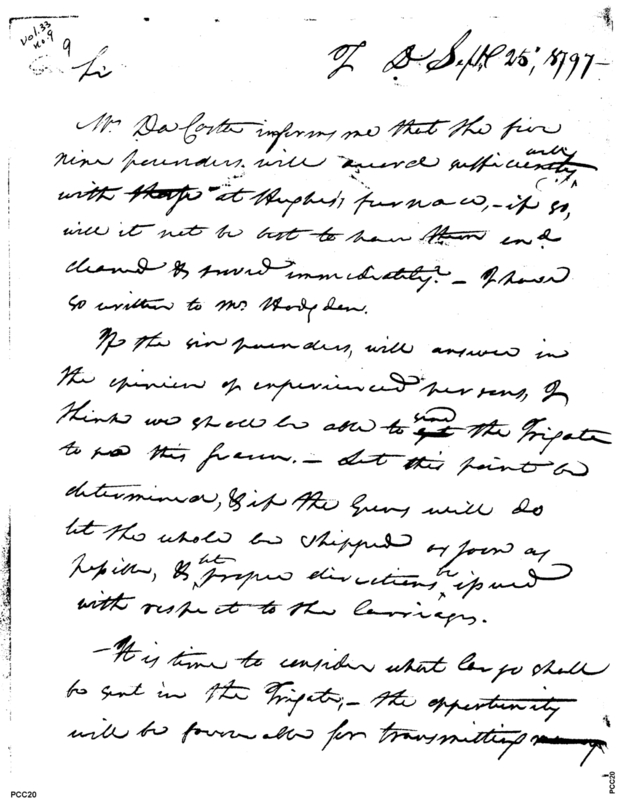 Vol. 33
No. 9
9
Sir
T D Septr 25, 1797
Mr. DaCosta informs me that the five
nine pounders will accord sufficiently
well
with at Hughes's furnace, - if so,
will it not be best to have them
cleaned & immediately? - I have
so written to Mr. Hodgdon.
If the six pounders, will answer in
the opinion of experienced persons, I
think we shall be able to
send
the Frigate
to sea this season. - Let this point be
determined, & if the Guns will do
let the whole be shipped as soon as
possible, &
let
proper directions
be
issued
with respect to the Carriages.
- It is time to consider what Cargo shall
be sent in the Frigate, - the opportunity
will be favorable for transmitting
PCC20
PCC20